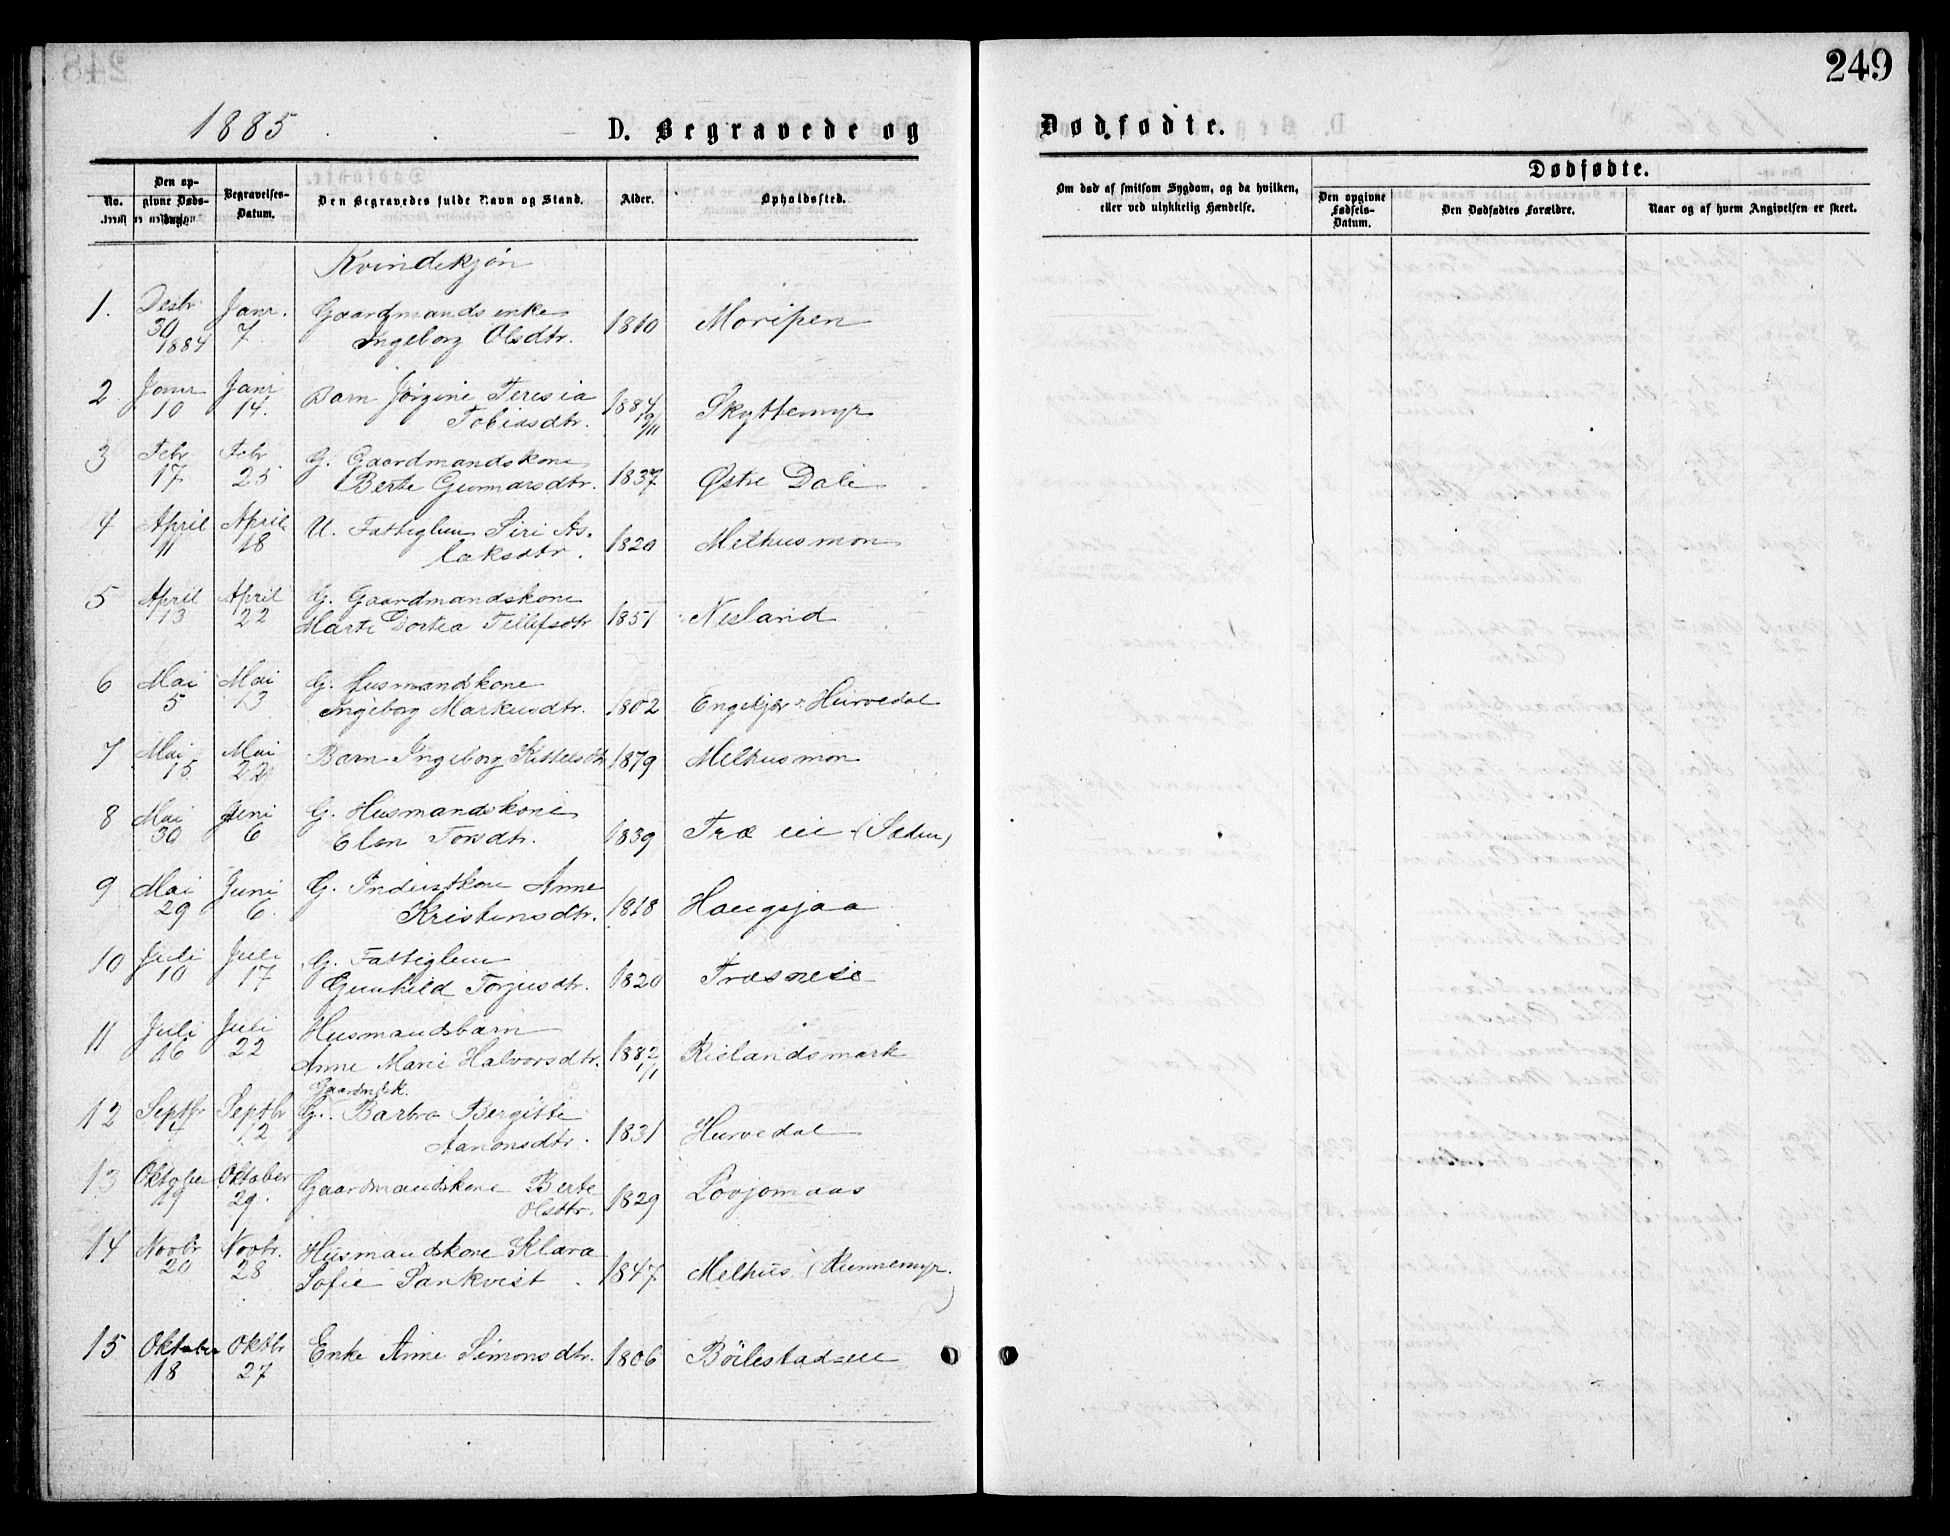 249
1885 D. Begravede og Dødfødte.
Dødfødte.
No. Den op- givne Døds- Begravelses- Datum. Den Begravedes fulde Navn og Stand. Alder. Opholdssted.
Om død af smitsom Sygdom, og da hvilken, eller ved ulykkelig Hændelse. Den opgivne Fødsels- Datum. Den Dødfødtes Forældre. Naar og af hvem Angivelsen er skeet.
Kvindekjøn
1. Desbr 30 1884 Janr. 7 Gaardmandsenke Ingeborg Olsdtr. 1810 Moripen
2 Janr 10 Janr 14. Barn Jørgine Teresia Tobiasdtr. 1884 19/11 Skyttemyr
3 Febr 17 Febr 25 G. Gaardmandskone Berte Gunnarsdtr. 1837 Østre Dale
4 April 11 April 18 U. Fattiglem Siri As- laksdtr. 1820 Melhusmon
5 April 13 April 22 G. Gaardmandskone Marte Dortea Tellefsdtr 1851 Nesland
6 Mai 5 Mai 13 G. Husmandskone Ingeborg Markusdtr. 1802 Engekjær Hurvedal
7 Mai 15 Mai 22 Barn Ingeborg Kittelsdtr 1879 Melhusmon
8 Mai 30 Juni 6 G. Husmandskone Elen Torsdtr. 1839 Træ eie (Sæden)
9 Mai 29 Juni 6. G. Inderstkone Anne Kristensdtr. 1818 Haugsjaa
10 Juli 10 Juli 17 G. Fattiglem Gunhild Torjusdtr. 1820 Træsnese
11 Juli 16 Juli 22 Husmandsbarn Anne Marie Halvorsdtr. 1882 1/1 Rislandsmark
Gaardmdsk.
12 Septbr 4 Septbr 12 G. Barbro Bergitte Aanonsdtr. 1831 Hurvedal
13 Oktober 19 Oktober 29. Gaardmandskone Berte Olsdtr. 1829 Lovjomaas
14 Novbr 20 Novbr. 28 Husmandskone Klara Sofie Sankvist 1847 Melhus (Runnemyr.)
15 Oktober 18 Oktbr 27 Enke Anne Simonsdtr. 1806 Böilestad-eie